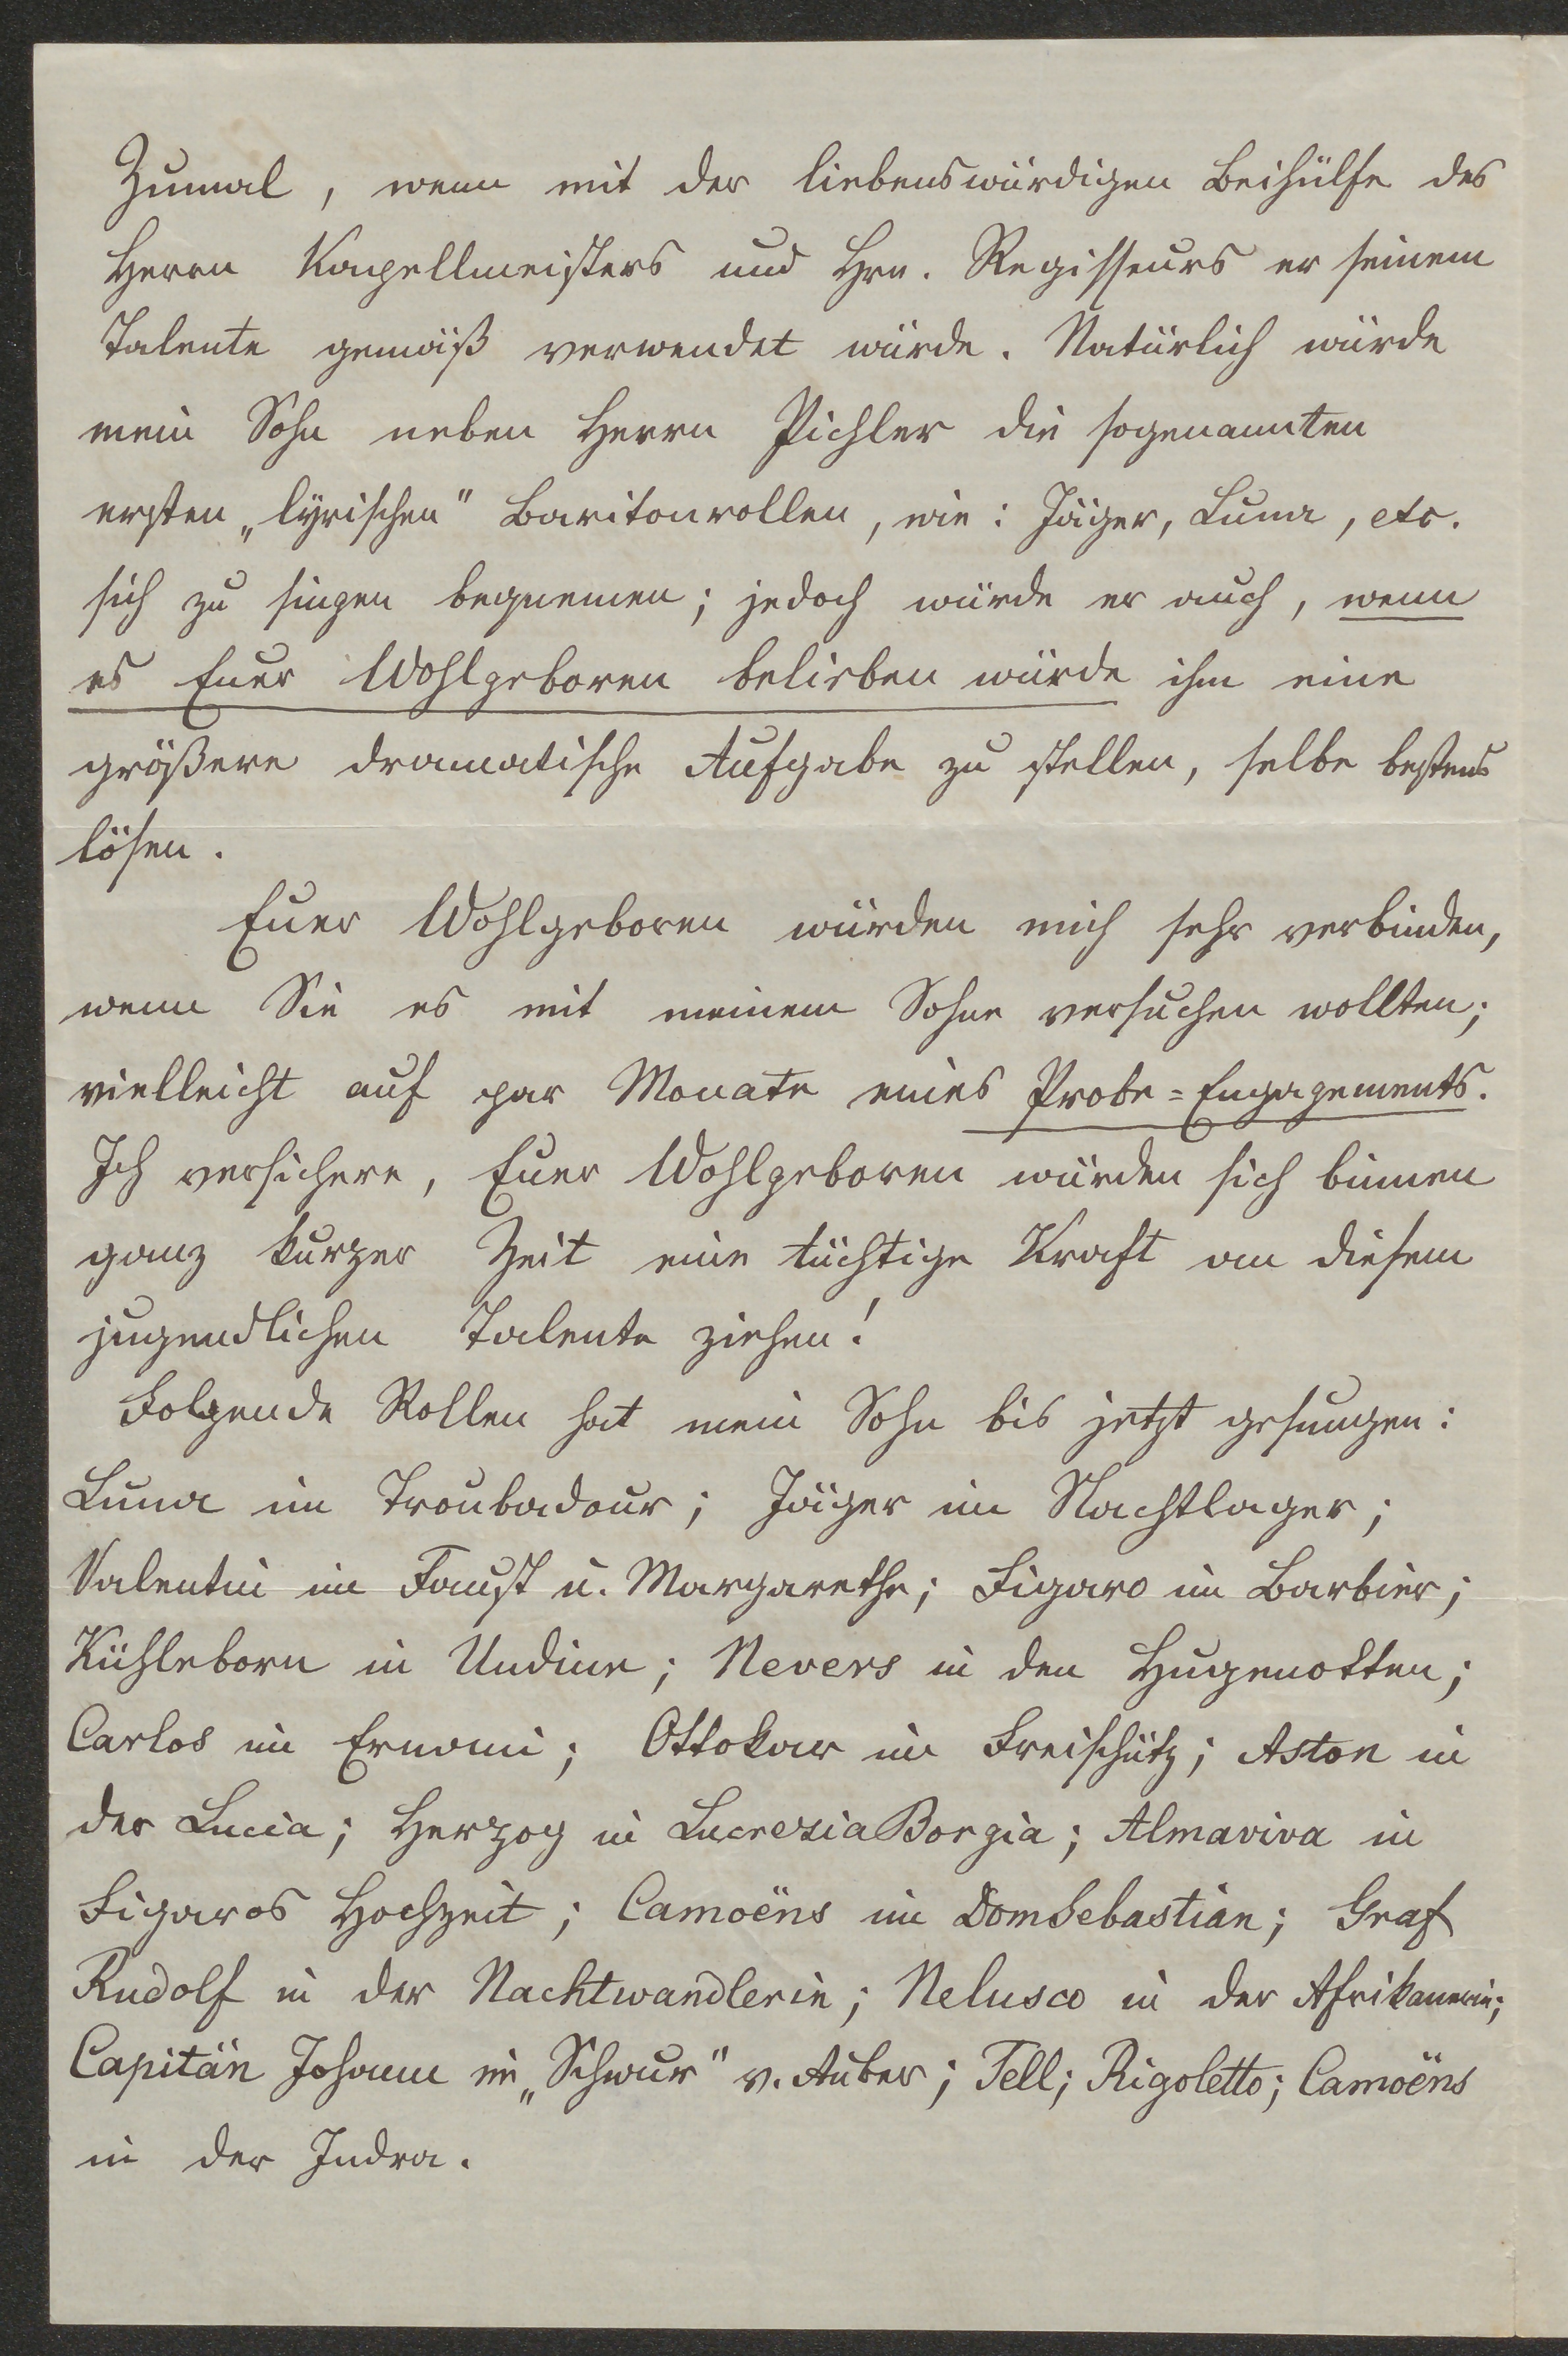 Zumal, wenn mit der liebenswürdigen Beihülfe des
Herrn Kapellmeisters und Hrn. Regisseurs er seinem
Talente gemäß verwendet würde. Natürlich würde
mein Sohn neben Herrn Pichler die sogenannten
ersten „lyrischen" Baritonrollen, wie: Jäger, Luna, etc.
sich zu singen bequemen; jedoch würde er auch, wenn
es Euer Wohlgeboren belieben würde ihm eine
größere dramatische Aufgabe zu stellen, selbe bestens
lösen.
Euer Wohlgeboren würden mich sehr verbinden,
wenn Sie es mit meinem Sohne versuchen wollten;
vielleicht auf par Monate eines Probe=Engagements.
Ich versichere, Euer Wohlgeboren würden sich binnen
ganz kurzer Zeit eine tüchtige Kraft an diesem
jugendlichen Talente ziehen!
Folgende Rollen hat mein Sohn bis jetzt gesungen:
Luna im Troubadour; Jäger im Nachtlager;
Valentin im Faust u. Margarethe; Figaro im Barbier;
Kühleborn in Undine; Nevers in den Hugenotten;
Carlos im Ernani; Ottokar im Freischütz; Aston in
der Lucia; Herzog in Lucrezia Borgia; Almaviva in
Figaros Hochzeit; Camoëns im Dom Sebastian; Graf
Rudolf in der Nachtwandlerin; Nelusco in der Afrikanerin;
Capitän Johann im „Schwur" v. Auber; Tell; Rigoletto; Camoëns
in der Indra.